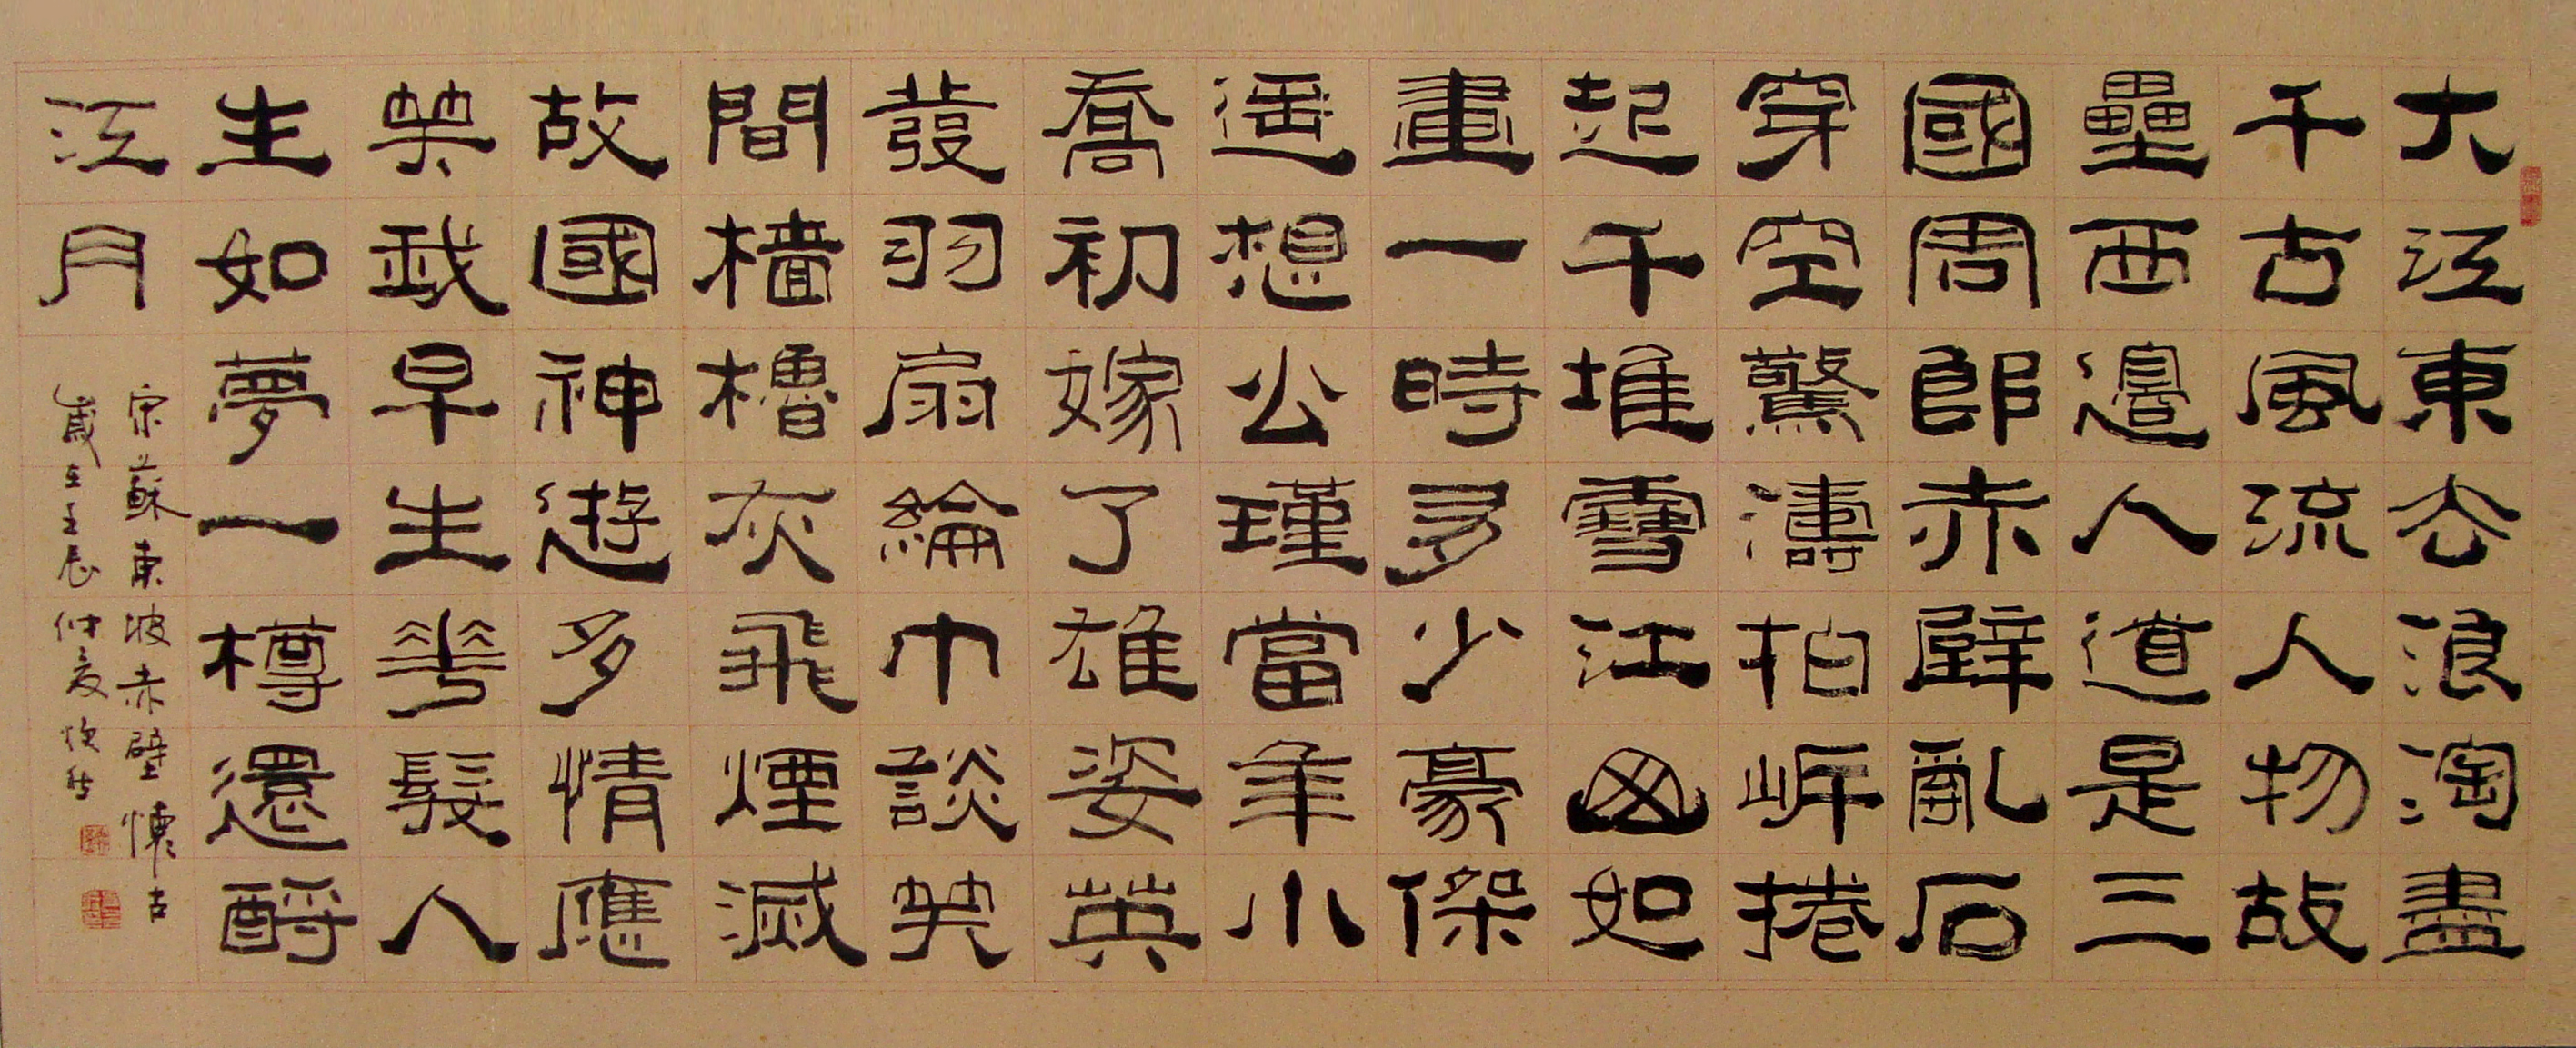 大江東去浪淘盡
千古風流人物故
壘西邊人道是三
國周郎赤壁亂石
穿空驚濤拍岸捲
起千堆雪江山如
畫一時多少豪傑
遥想公瑾當年小
喬初嫁了雄姿英
發羽扇綸巾談笑
間檣櫓灰飛煙滅
故國神遊多情應
笑我早生華髮人
生如夢一樽還酹
江月
宋蘇東坡赤壁懷古
歲在壬辰仲夏